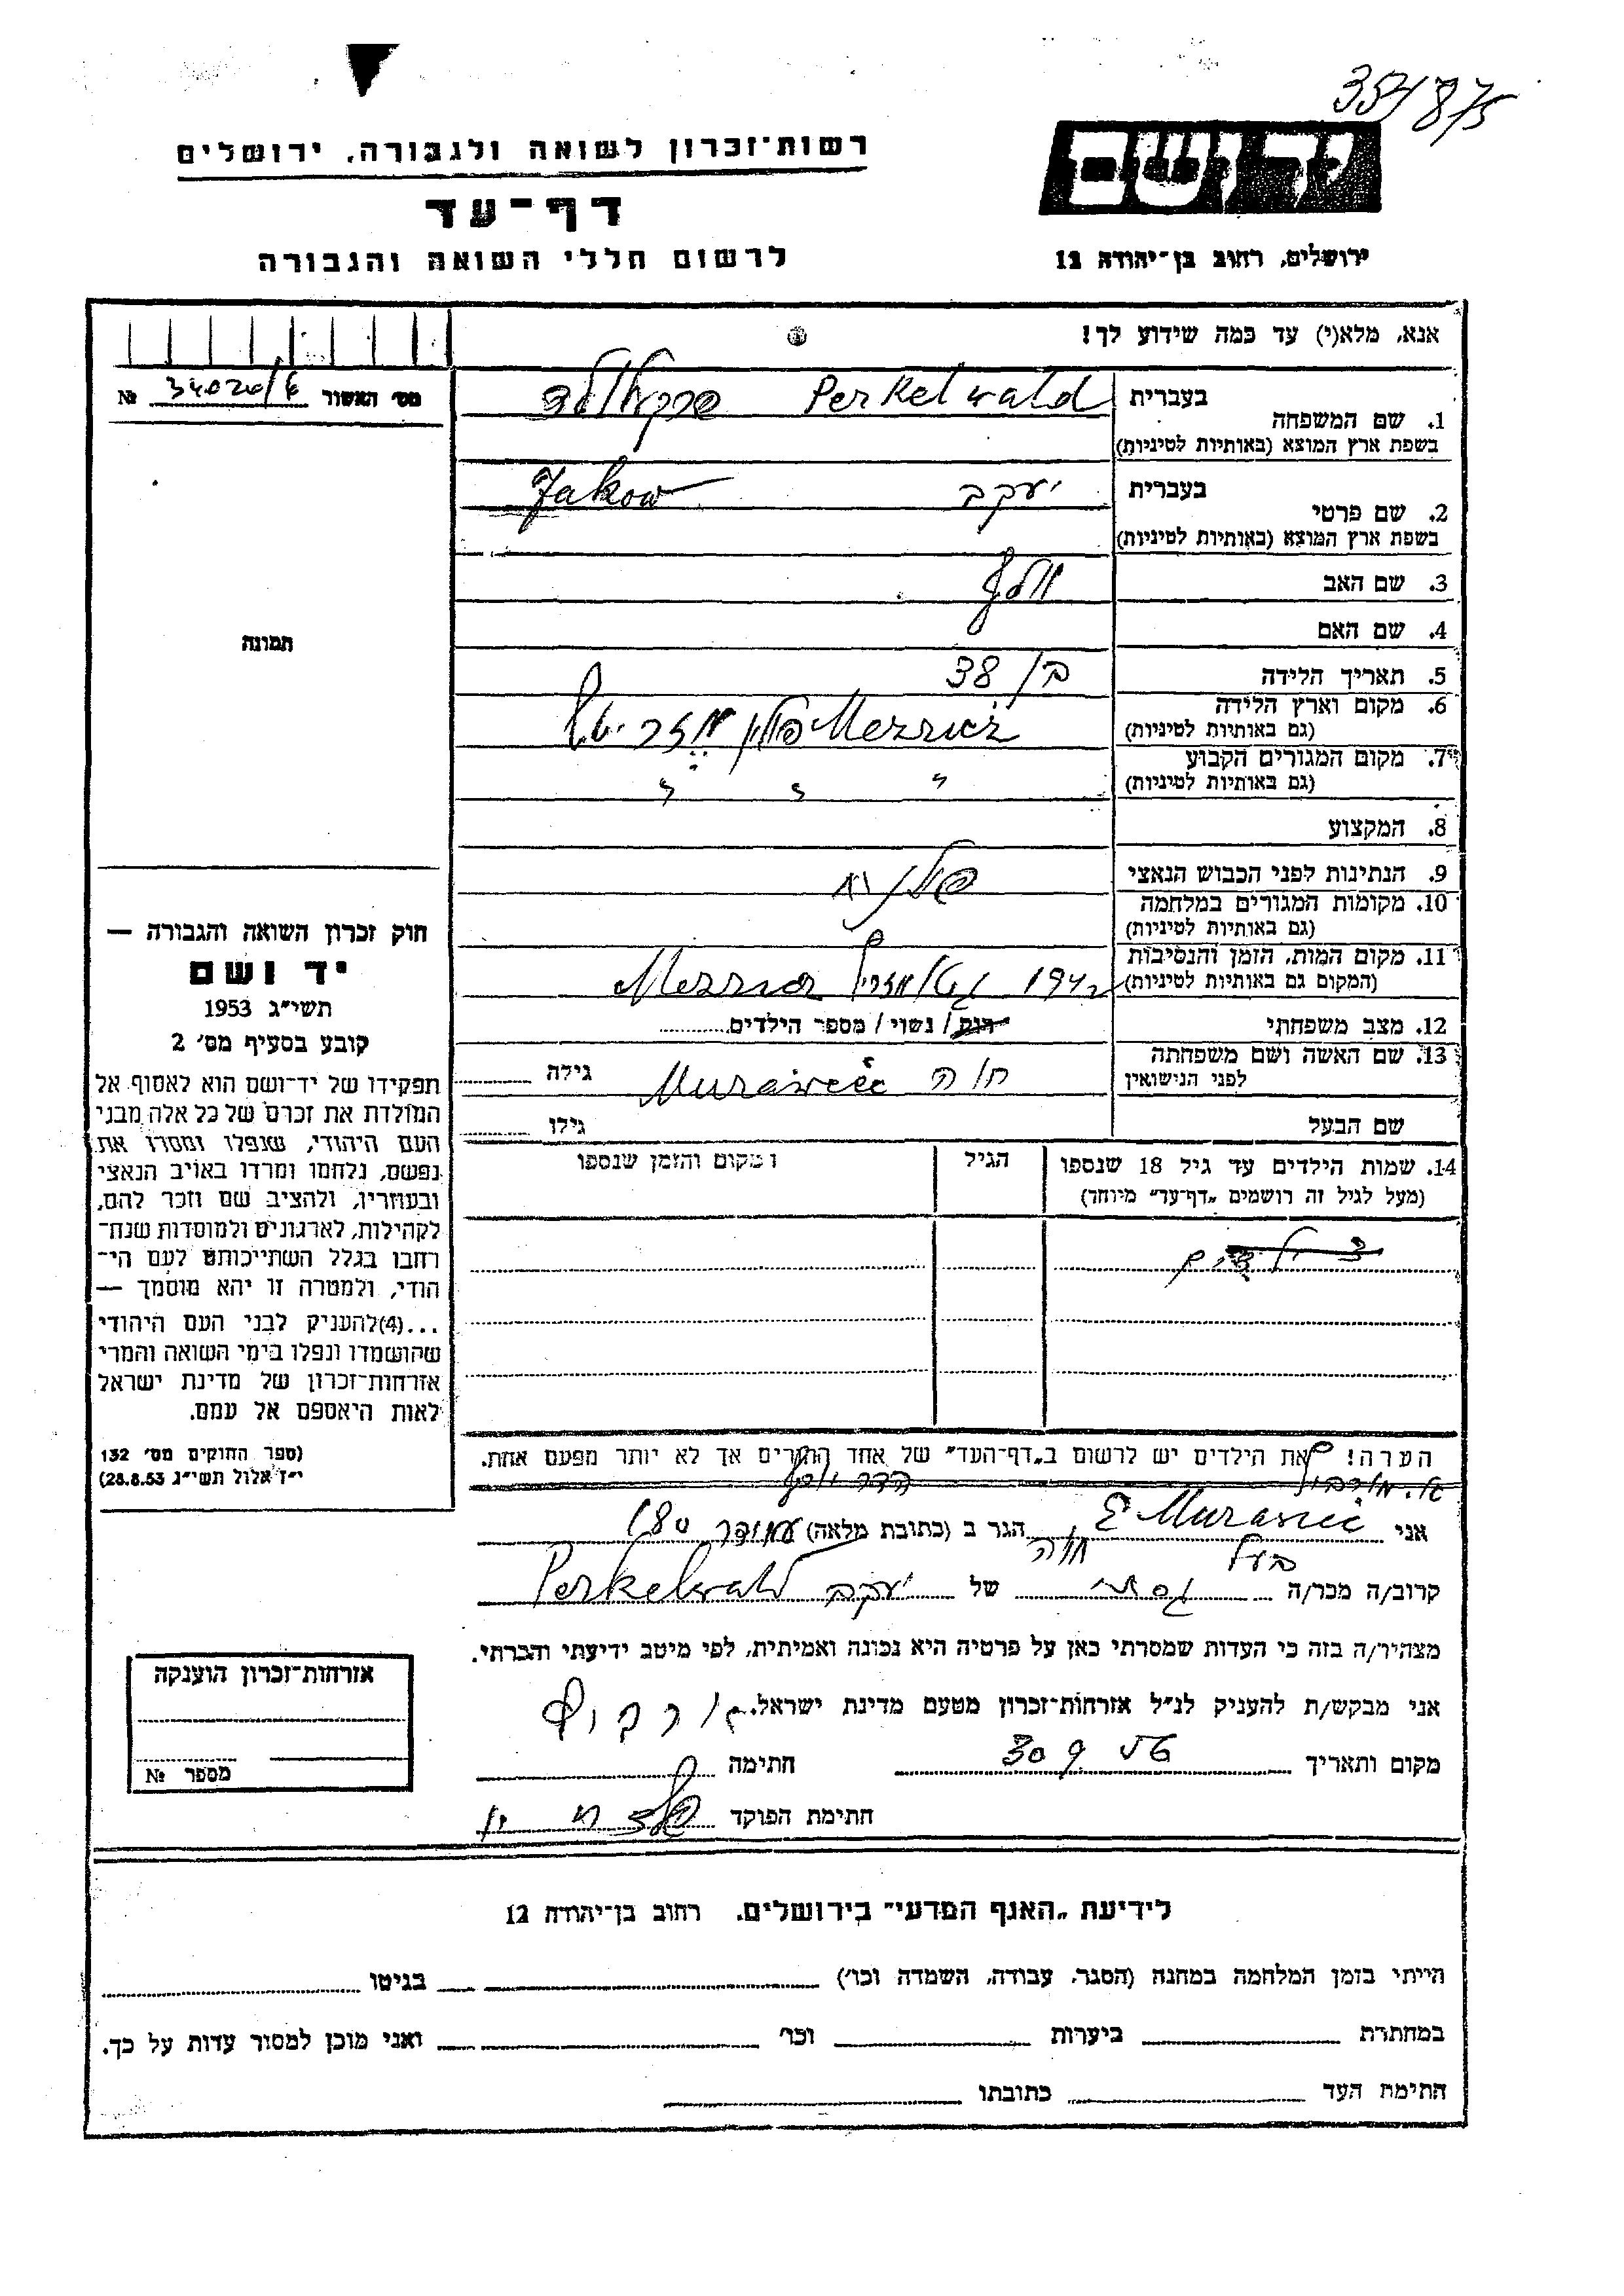 354/875
רשות־זכרון לשואה ולגבורה, ירושלים
דף־עד
לרשום חללי השואה והגבורה
יד ושם
ירושלים, רחוב בן־יהודה 12
אנא, מלא(י) עד כמה שידוע לך!
מס׳ האשור № 34020/6
1. שם המשפחה בעברית Perkelwald פרקלולד
בשפת ארץ המוצא (באותיות לטיניות)
2. שם פרטי בעברית יעקב Jakow
בשפת ארץ המוצא (באותיות לטיניות)
3. שם האב וולף
4. שם האם
5. תאריך הלידה בן 38
6. מקום וארץ הלידה Mezricz פולין
(גם באותיות לטיניות)
7. מקום המגורים הקבוע " " "
(גם באותיות לטיניות)
8. המקצוע
9. הנתינות לפני הכבוש הנאצי פולניה
10. מקומות המגורים במלחמה
(גם באותיות לטיניות)
11. מקום המות, הזמן והנסיבות 1942
(המקום גם באותיות לטיניות)
12. מצב משפחתי רוק / נשוי / מספר הילדים
13. שם האשה ושם משפחתה לפני הנישואין חוה Murawieć גילה
שם הבעל גילו
14. שמות הילדים עד גיל 18 שנספו הגיל ומקום והזמן שנספו
(מעל לגיל זה רושמים „דף־עד״ מיוחד)
הערה! את הילדים יש לרשום ב„דף־העד״ של אחד ההורים אך לא יותר מפעם אחת.
אני E Murawieć הגר ב (כתובת מלאה) 180
קרוב/ה מכר/ה גיסתי חוה של יעקב Perkelwald
מצהיר/ה בזה כי העדות שמסרתי כאן על פרטיה היא נכונה ואמיתית, לפי מיטב ידיעתי והכרתי.
אני מבקש/ת להעניק לנ״ל אזרחות־זכרון מטעם מדינת ישראל.
מקום ותאריך 30 9 56 חתימה
חתימת הפוקד
תמונה
חוק זכרון השואה והגבורה —
יד ושם
תשי״ג 1953
קובע בסעיף מס׳ 2
תפקידו של יד־ושם הוא לאסוף אל
המולדת את זכרם של כל אלה מבני
העם היהודי, שנפלו ומסרו את
נפשם, נלחמו ומרדו באויב הנאצי
ובעוזריו, ולהציב שם וזכר להם,
לקהילות, לארגונים ולמוסדות שנח־
רחבו בגלל השתייכותם לעם הי־
הודי, ולמטרה זו יהא מוסמך —
...(4) להעניק לבני העם היהודי
שהושמדו ונפלו בימי השואה והמרי
אזרחות־זכרון של מדינת ישראל
לאות היאספם אל עמם.
(ספר החוקים מס׳ 132
י״ז אלול תשי״ג 28.8.53)
אזרחות־זכרון הוענקה
מספר №
לידיעת „האגף המדעי״ בירושלים, רחוב בן־יהודה 12
הייתי בזמן המלחמה במחנה (הסגר, עבודה, השמדה וכו׳) בגיטו
במחתרת ביערות וכו׳ ואני מוכן למסור עדות על כך.
חתימת העד כתובתו